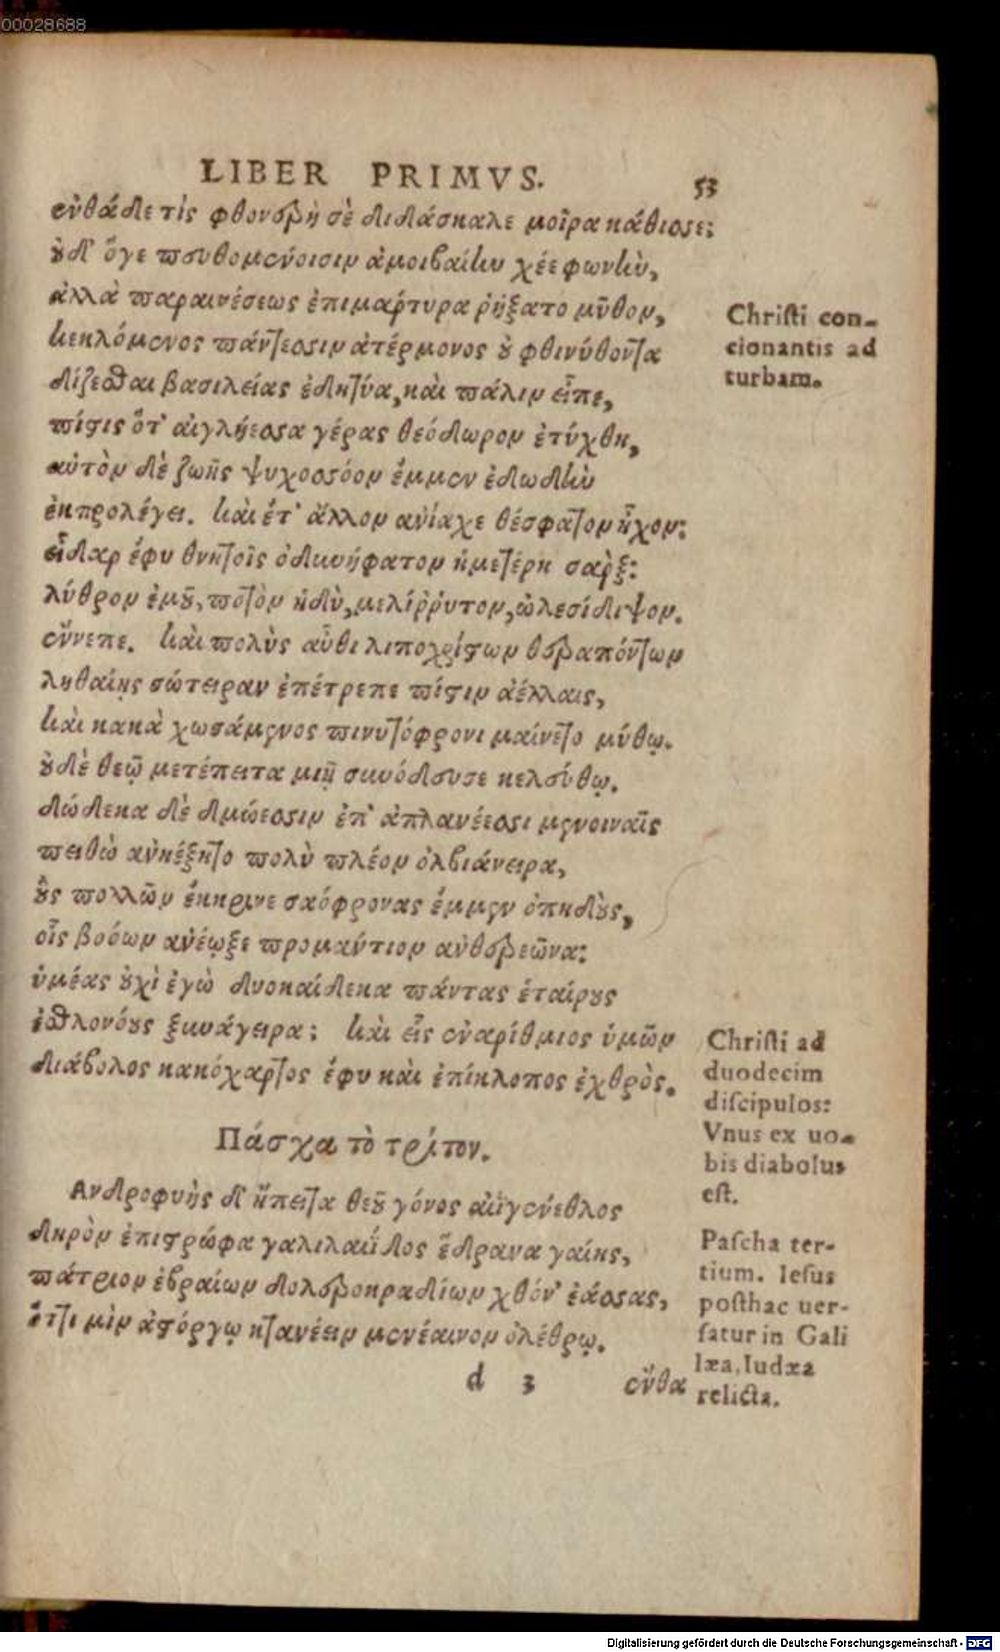 00028688
LIBER PRIMVS. 53
ἐνθάδε τίς φθονερὴ σὲ διδάσκαλε μοῖρα κάθισσε;
οὐδ' ὅγε πευθομένοισιν ἀμοιβαίην χέε φωνὴν,
ἀλλὰ παραινέσεως ἐπιμάρτυρα ῥήξατο μῦθον,
κεκλόμενος πάντεσσιν ἀτέρμονος οὐ φθινύθοντα
δίζεσθαι βασιλείας ἐδητύα, καὶ πάλιν εἶπε,
πίστις ὅτ' αἰγλήεσσα γέρας θεόδωρον ἐτύχθη,
αὐτὸν δὲ ζωῆς ψυχοσσόον ἔμμεν ἐδωδὴν
ἐκπρολέγει. καὶ ἔτ' ἄλλον ἀνίαχε θέσφατον ἦχον:
εἶδαρ ἔφυ θνητοῖς ὀδυνήφατον ἡμετέρη σαρξ:
λύθρον ἐμοῦ, ποτὸν ἡδὺ, μελίῤῥυτον, ὠλεσίδιψον.
ἔννεπε. καὶ πολὺς αὖθι λιποχρίστων θεραπόντων
ληθαίης σώτειραν ἐπέτρεπε πίστιν ἀέλλαις,
καὶ κακὰ χωσάμενος πινυτόφρονι μαίνετο μύθῳ.
οὐδὲ θεῷ μετέπειτα μιῇ συνόδευσε κελεύθῳ.
δώδεκα δὲ δμώεσσιν ἐπ' ἀπλανέεσσι μενοιναῖς
πειθὼ ἀνέξητο πολὺ πλέον ὀλβιάνειρα,
οὓς πολλῶν ἔκκρινε σαόφρονας ἔμμεν ὀπηδοὺς,
οἷς βοόων ἀνέῳξε προμάντιον ἀνθερεῶνα:
ὑμέας οὐχὶ ἐγὼ δυοκαίδεκα πάντας ἑταίρους
ἐσθλονόους ξυνάγειρα; καὶ εἷς ἐναρίθμιος ὑμῶν
διάβολος κακόχαρτος ἔφυ καὶ ἐπίκλοπος ἐχθρὸς.
Christi con-
cionantis ad
turbam.
Christi ad
duodecim
discipulos:
Vnus ex uo-
bis diabolus
est.
Πάσχα τὸ τρίτον.
Ανδροφυὴς δ' ἤπειτα θεοῦ γόνος αἰγένεθλος
δηρὸν ἐπιστρώφα γαλιλαΐδος ἕδρανα γαίης,
πάτριον ἑβραίων δολεροκραδίων χθόν' ἐάσσας,
ὅττι μιν ἀστόργῳ κτανέειν μενέαινον ὀλέθρῳ.
Pascha ter-
tium. Iesus
posthac uer-
satur in Gali
læa, Iudæa
relicta.
d 3 ἔνθα
Digitalisierung gefördert durch die Deutsche Forschungsgemeinschaft - DFG